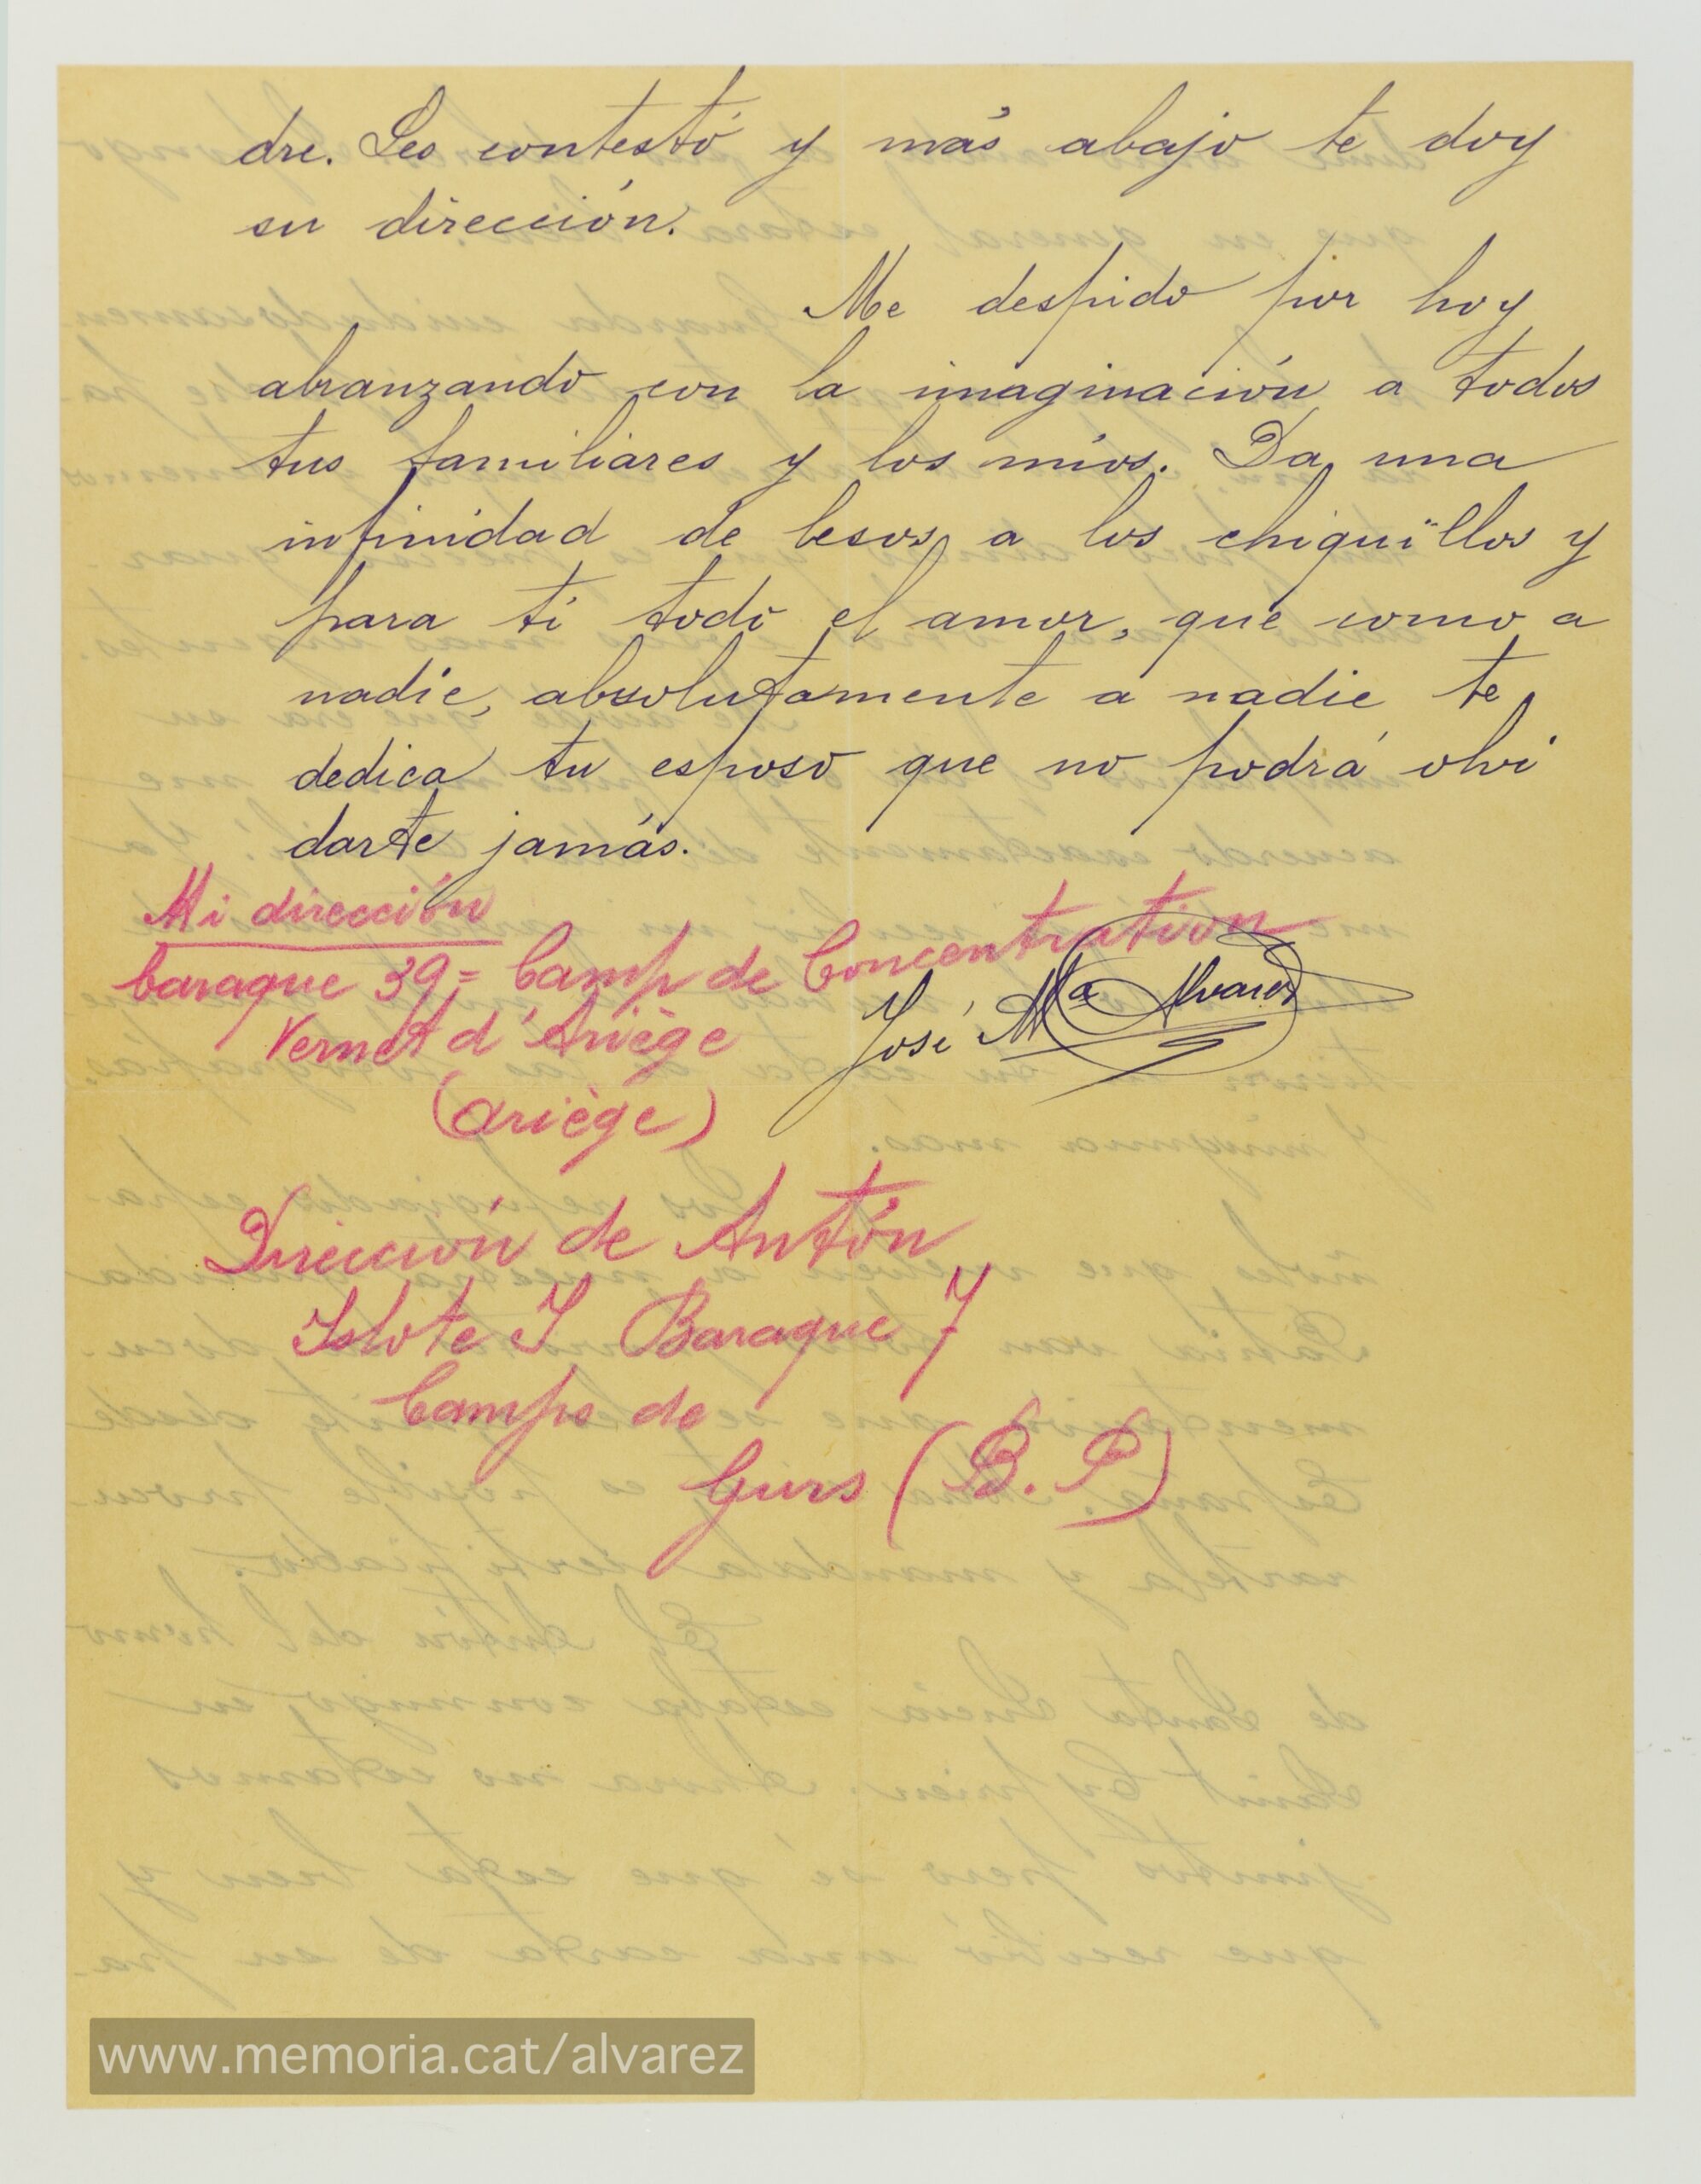 dre. Les contestó y más abajo te doy
su dirección.
Me despido por hoy
abranzando con la imaginación a todos
tus familiares y los míos. Da una
infinidad de besos a los chiquïllos y
para ti todo el amor, que como a
nadie, absolutamente a nadie te
dedica tu esposo que no podrá olvi
darte jamás.
Mi dirección
baraque 39= Camp de Concentration
Vernet d'Ariège
(Ariège)
José Mª Alvarez
Dirección de Antón
Islote I Baraque 7
Campo de
Gurs (B.P)
www.memoria.cat/alvarez